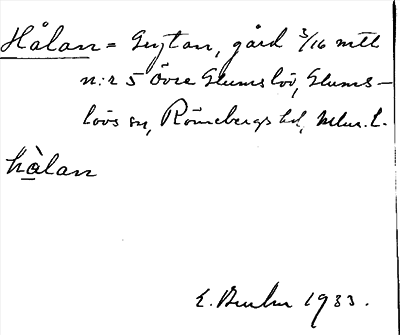 Hålan = Grytan, gård 3/16 mtl
n:r 5 Övre Glumslöv, Glums-
lövs sn, Rönnebergs hd, Mlm. l.
hålan
E. 1933.